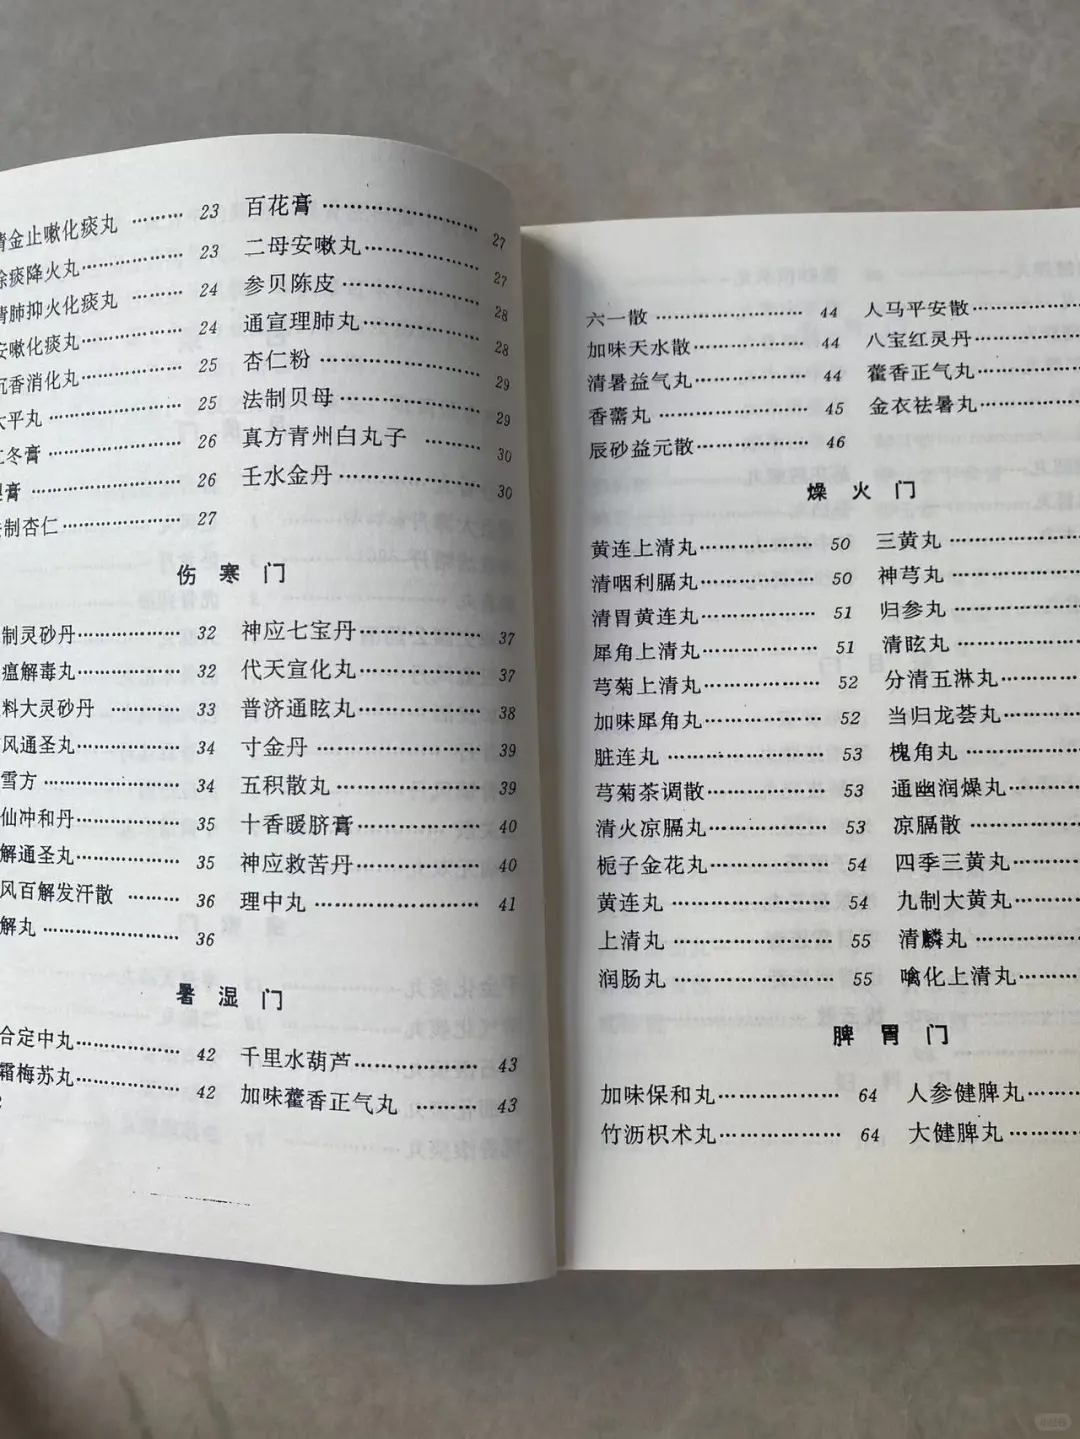 清金止嗽化痰丸 ……… 23
除痰降火丸…………… 23
清肺抑火化痰丸 ……… 24
安嗽化痰丸…………… 24
沉香消化丸…………… 25
太平丸………………… 25
冬膏………………… 26
膏 ………………… 26
法制杏仁……………… 27
百花膏 ………………… 27
二母安嗽丸…………… 27
参贝陈皮 ……………… 28
通宣理肺丸…………… 28
杏仁粉 ………………… 29
法制贝母 ……………… 29
真方青州白丸子 ……… 30
壬水金丹……………… 30
伤寒门
制灵砂丹……………… 32
瘟解毒丸……………… 32
料大灵砂丹 ………… 33
风通圣丸……………… 34
雪方 ………………… 34
仙冲和丹……………… 35
解通圣丸……………… 35
风百解发汗散 ……… 36
解丸………………… 36
神应七宝丹…………… 37
代天宣化丸…………… 37
普济通眩丸…………… 38
寸金丹 ………………… 39
五积散丸……………… 39
十香暖脐膏…………… 40
神应救苦丹…………… 40
理中丸 ………………… 41
暑湿门
合定中丸……………… 42
霜梅苏丸……………… 42
千里水葫芦…………… 43
加味藿香正气丸 ……… 43
2
六一散 ………………… 44
加味天水散…………… 44
清暑益气丸…………… 44
香薷丸 ………………… 45
辰砂益元散…………… 46
人马平安散…………
八宝红灵丹 …………
藿香正气丸…………
金衣祛暑丸…………
燥火门
黄连上清丸…………… 50
清咽利膈丸…………… 50
清胃黄连丸…………… 51
犀角上清丸…………… 51
芎菊上清丸…………… 52
加味犀角丸…………… 52
脏连丸 ………………… 53
芎菊茶调散…………… 53
清火凉膈丸…………… 53
栀子金花丸…………… 54
黄连丸 ………………… 54
上清丸 ………………… 55
润肠丸 ………………… 55
三黄丸 ………………
神芎丸 ………………
归参丸 ………………
清眩丸 ………………
分清五淋丸…………
当归龙荟丸…………
槐角丸 ………………
通幽润燥丸…………
凉膈散 ………………
四季三黄丸…………
九制大黄丸…………
清麟丸 ………………
噙化上清丸…………
脾胃门
加味保和丸…………… 64
竹沥枳术丸…………… 64
人参健脾丸…………
大健脾丸 ……………